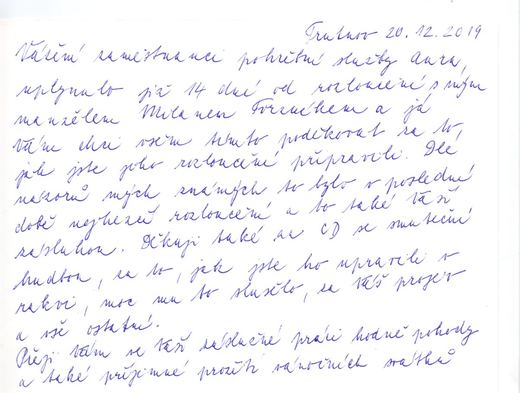 Trutnov 20.12.2019
Vážení zaměstnanci pohřební služby Aura,
uplynulo již 14 dné od rozloučení s mým
manželem Milanem a já
Vám chci všem tímto poděkovat za to,
jak jste jeho rozloučení připravili. Dle
názorů mých známých to bylo v poslední
době nejhezčí rozloučení a to také Vaší
zásluhou. Děkuji také za CD se smuteční
hudbou, za to, jak jste ho upravili v
rakvi, moc mu to slušelo, za Váš projev
a vše ostatní.
Přeji Vám ve Vaší záslužné práci hodně pohody
a také příjemné prožití vánočních svátků